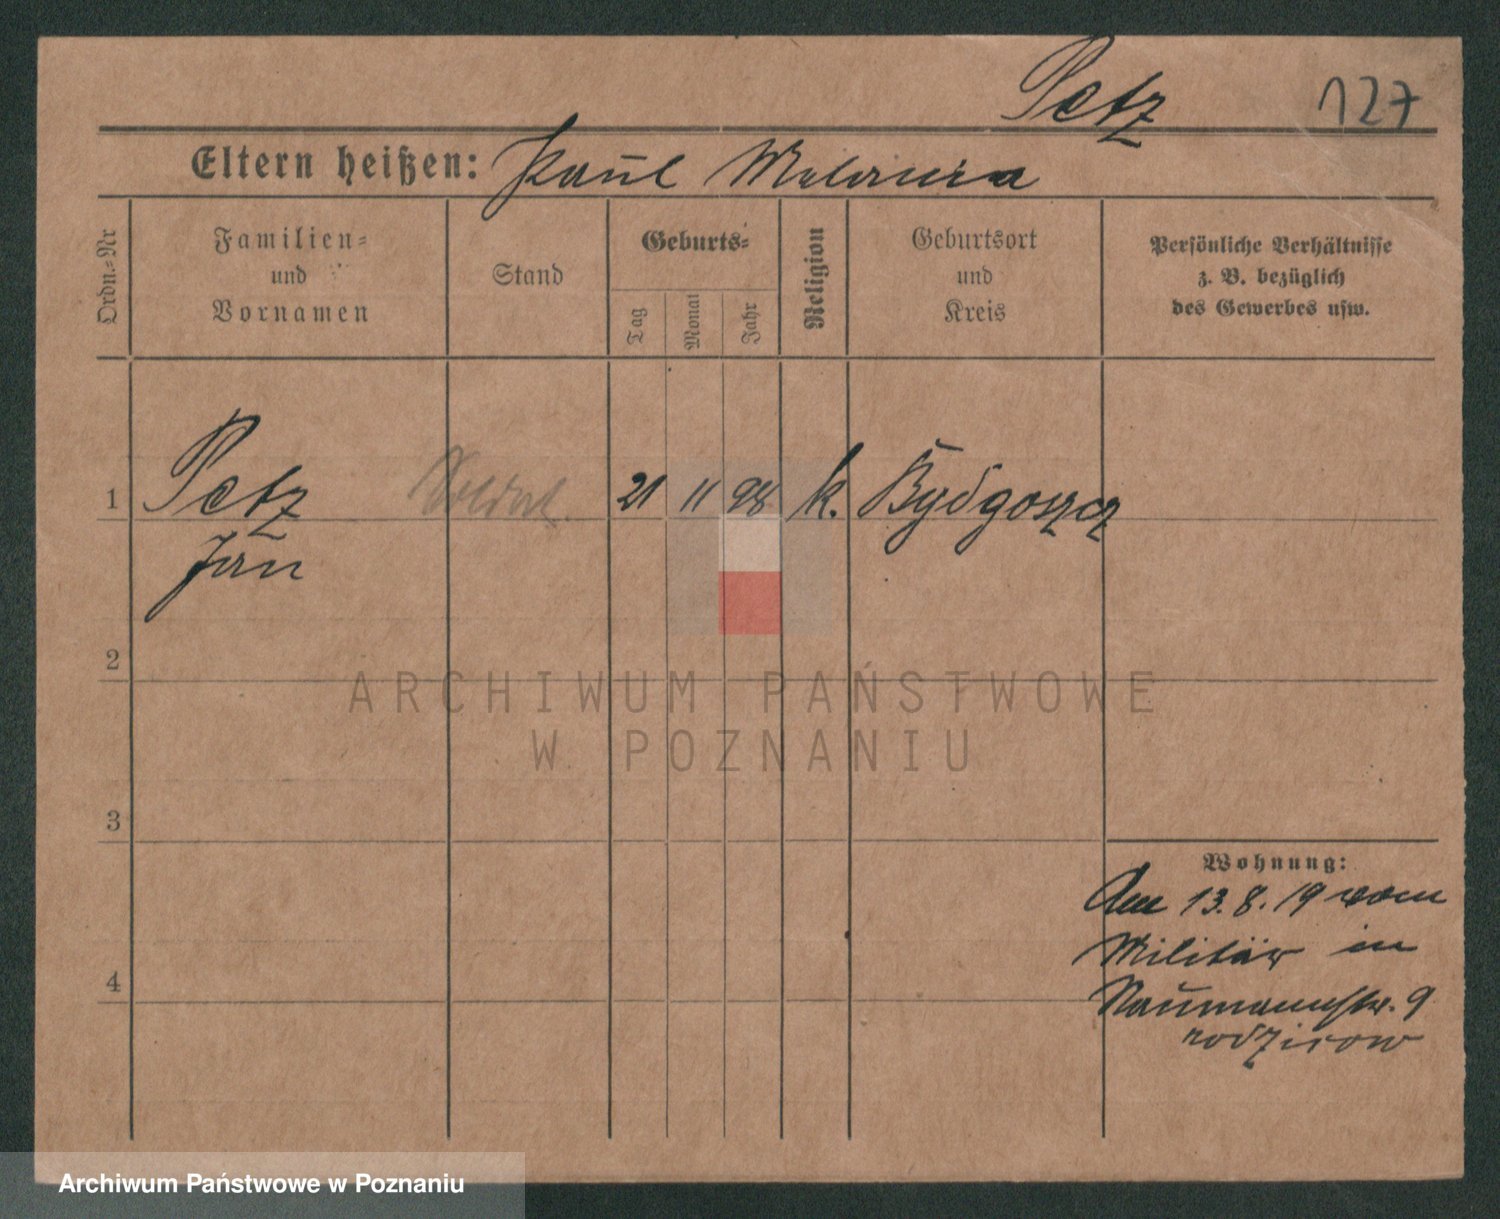 Petz 127
Eltern heißen: Paul Melania
Ordn.-Nr
Familien-
und
Vornamen
Stand
Geburts-
Tag
Monat
Jahr
Religion
Geburtsort
und
Kreis
Persönliche Verhältnisse
z. B. bezüglich
des Gewerbes usw.
1 Petz Soldat. 21 11 98 k. Bydgoszcz
Jan
2
ARCHIWUM PAŃSTWOWE
W POZNANIU
3
Wohnung:
Am 13.8.19 vom
Militär in
4
Naumannstr. 9
rodziców
Archiwum Państwowe w Poznaniu